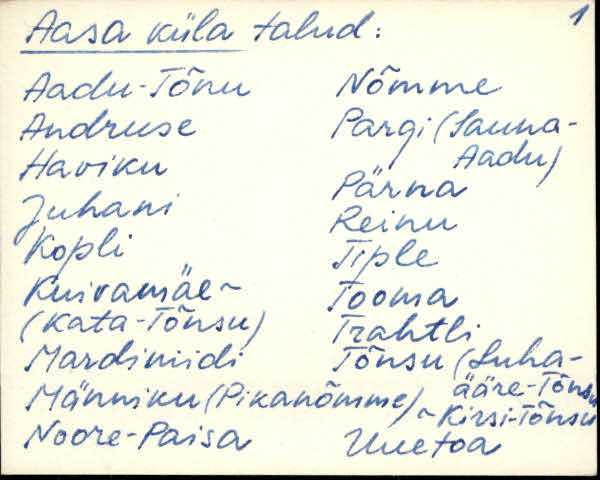 1
Aasa küla talud:
Aadu-Tõnu
Andruse
Haviku
Juhani
Kopli
Kuivamäe~
(Kata-Tõnsu)
Mardimidi
Männiku (Pikanõmme)
Noore-Paisa
Nõmme
Pargi (Sauna-
Aadu)
Pärna
Reinu
Tiple
Tooma
Trahtli
Tõnsu (Luha-
ääre-Tõnsu
~Kirsi-Tõnsu
Uuetoa